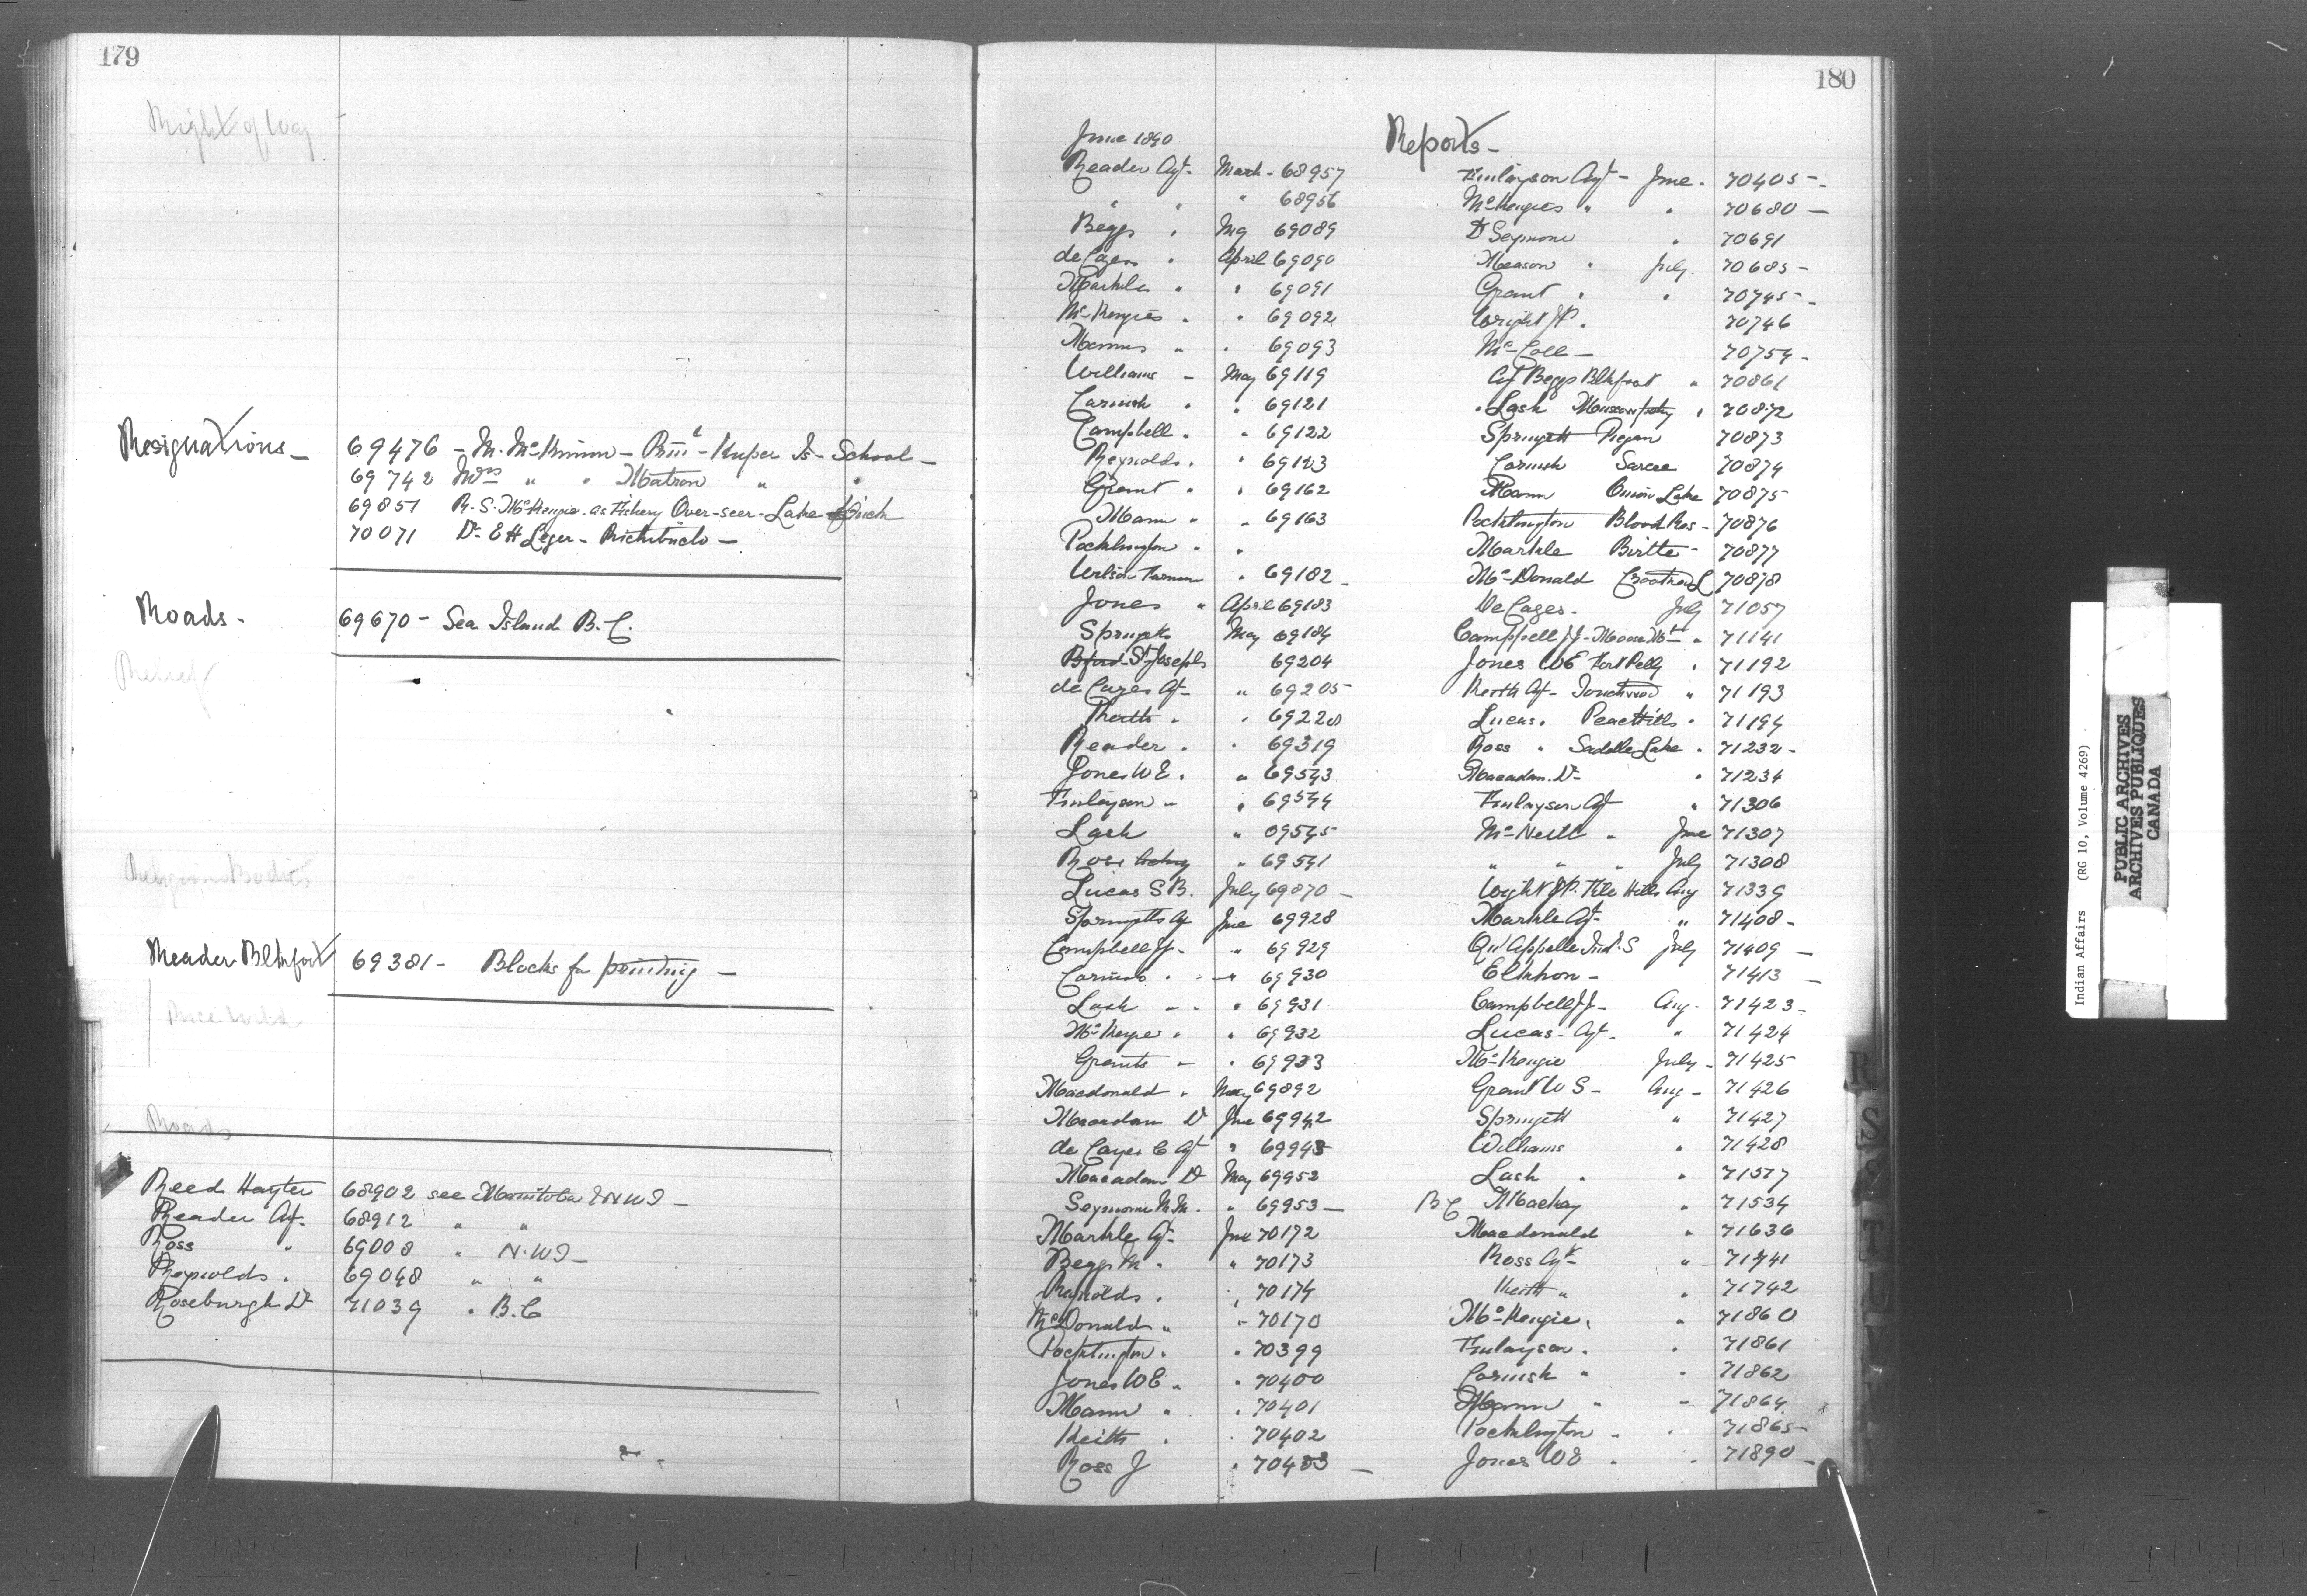 179
Right of Way
Resignations -
69476 - M. McKinnon - Prinl - Kuper Is - School -
69742 Mrs " " Matron " "
69851 R. S. McKenzie as Fishery Over-seer - Lake
70071 Dr E H Leger - Richibucto -
Roads -
69670 - Sea Island B. C.
Relief
Religious Bodies
Reader Blkfoot
69381 - Blocks for printing -
Rice Wild
Roads
Reed Hayter 68902 see Manitoba & NWT -
Reader Agt. 68912 " "
Ross " 69008 " N.W.T -
Reynolds " 69048 " "
Roseburgh Dr 71039 " B.C
180
June 1890
Reports -
Reader Agt - March - 68957
" " " 68956
Beggs " 69089
de Cazes " April 69090
Markle " " 69091
McKenzies " " 69092
" " 69093
Williams - May 69119
Cornish " " 69121
Campbell " " 69122
Reynolds " " 69123
Grant " " 69162
Mann " " 69163
Pocklington " "
Wilson Farmer " 69182 -
Jones " April 69183
Springett May 69184
St Josephs 69204
de Cazes Agt - " 69205
Keith " " 69220
Reader " " 69319
Jones W E " " 69543
Finlayson " " 69544
Lash " 69545
Rose " 69541
Lucas S B. July 69870 -
Springetts Agt June 69928
Campbell JJ - " 69929
Cornish " " 69930
Lash " " 69931
McKenzie " " 69932
Grants " " 69933
Macdonald " May 69892
Macadam Dr June 69942
de Cazes C Agt " 69943
Macadam Dr May 69952
Seymour M.M. " 69953 -
Markle Agt - June 70172
Beggs M " " 70173
Reynolds " " 70174
McDonald " " 70170
Pocklington " " 70399
Jones W E " " 70400
Mann " " 70401
Keith " " 70402
Ross J " 70403 -
Finlayson Agt - June - 70405 -
McKenzies " " 70680 -
Dr Seymour " 70691
Measom " July 70685 -
Grant " " 70745 -
Wright J P. 70746
McColl - 70754 -
Agt Beggs Blkfoot " 70861
" Lash Muscowpetg " 70872
Springett Piegan 70873
Cornish Sarcee 70874
Mann Onion Lake 70875
Pocklington Blood Res - 70876
Markle Birtle - 70877
McDonald Crooked L 70878
De Cazes - July 71057
Campbell JJ - Moose Mt - " 71141
Jones W E Fort Pelly " 71192
Keith Agt - Touchwood " 71193
Lucas " Peace Hills " 71194
Ross " Saddle Lake " 71232 -
Macadam Dr - " 71234
Finlayson Agt " 71306
McNeill " June 71307
" " " July 71308
Wright J P. File Hills Aug 71339
Markle Agt - " 71408 -
Qu'Appelle Ind. S July 71409 -
Elkhorn - 71413 -
Campbell JJ - Aug - 71423 -
Lucas - Agt - " 71424
McKenzie July - 71425
Grant W S - Aug - 71426
Springett " 71427
Williams " 71428
Lash " "
B C Mackay " 71534
Macdonald " 71636
Ross Agt - " 71741
Keith " " 71742
McKenzie " " 71860
Finlayson " " 71861
Cornish " " 71862
Mann " " 71864
Pocklington " " 71865 -
Jones W E " " 71890 -
R
S
T
U
V
Indian Affairs (RG 10, Volume 4269)
PUBLIC ARCHIVES
ARCHIVES PUBLIQUES
CANADA